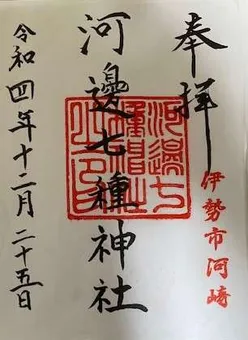 奉拝
伊勢市河崎
河邊七種神社
令和四年十二月二十五日